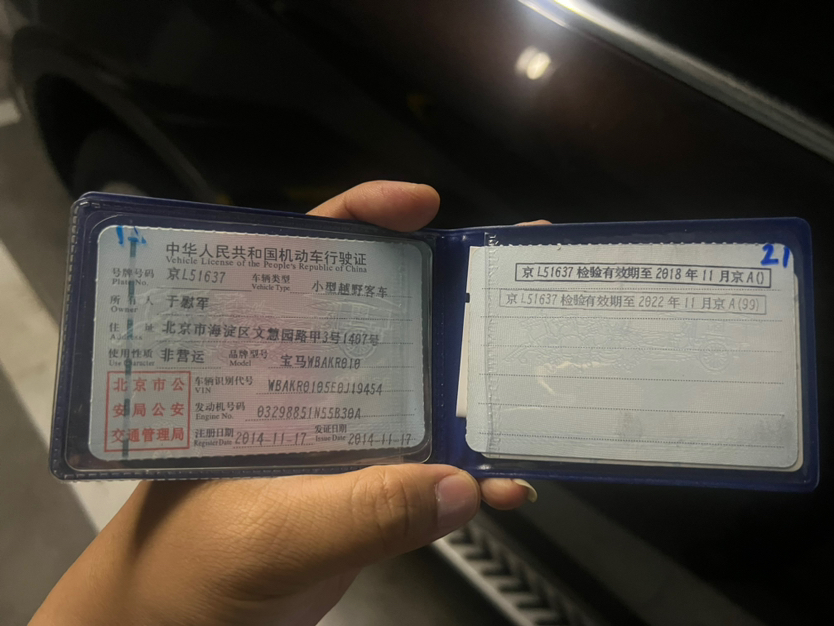 中华人民共和国机动车行驶证
Vehicle License of the People's Republic of China
号牌号码 京L51637 车辆类型 小型越野客车
Plate No. Vehicle Type
所有人 于慰军
Owner
住址 北京市海淀区文慧园路甲3号1407号
Address
使用性质 非营运 品牌型号 宝马WBAKR010
Use Character Model
北京市公
安局公安
交通管理局
车辆识别代号 WBAKR0105E0J19454
VIN
发动机号码 03298851N55B30A
Engine No.
注册日期 2014-11-17 发证日期 2014-11-17
Register Date Issue Date
21
京L51637 检验有效期至 2018 年 11 月京 A()
京L51637 检验有效期至 2022 年 11 月京 A(99)